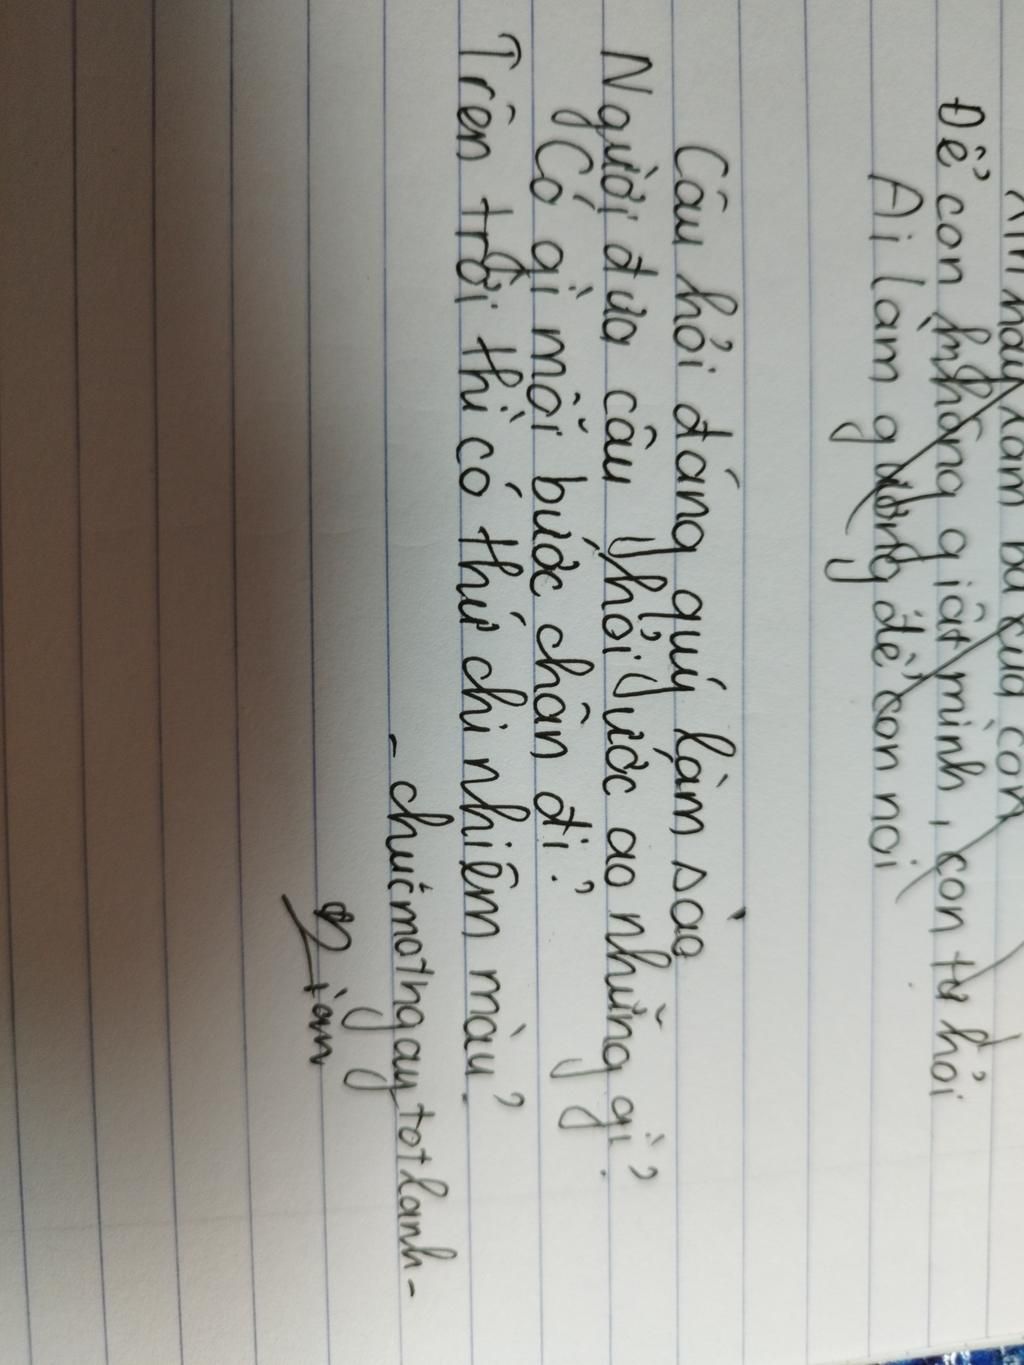 này làm bà của con
Để con không giật mình, con tự hỏi
Ai làm gương để con noi
Câu hỏi đáng quý làm sao
Người đưa câu hỏi, ước ao những gì?
Có gì mỗi bước chân đi?
Trên trời thì có thứ chi nhiệm màu?
- chucmotngaytotlanh -